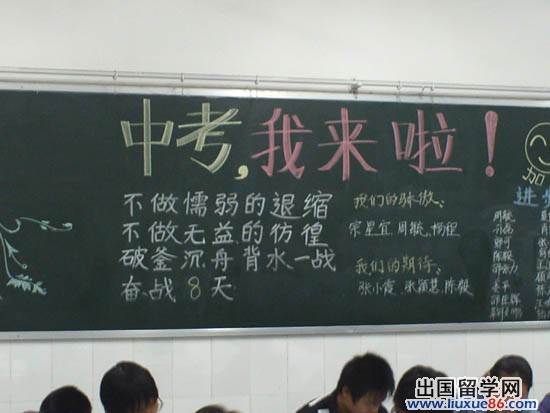 中考,我来啦!
不做懦弱的退缩
不做无益的彷徨
破釜沉舟背水一战
奋战8天
我们的骄傲:
宋星宜 周毓 杨程
我们的期待:
张小霞 张颖慧 陈毅
加
进
出国留学网
www.liuxue86.com